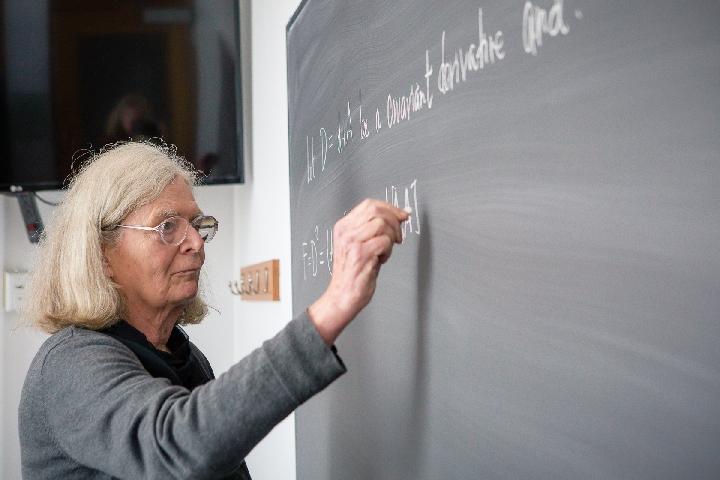 Let D = d+A be a covariant derivative and
F=D²=(
A]